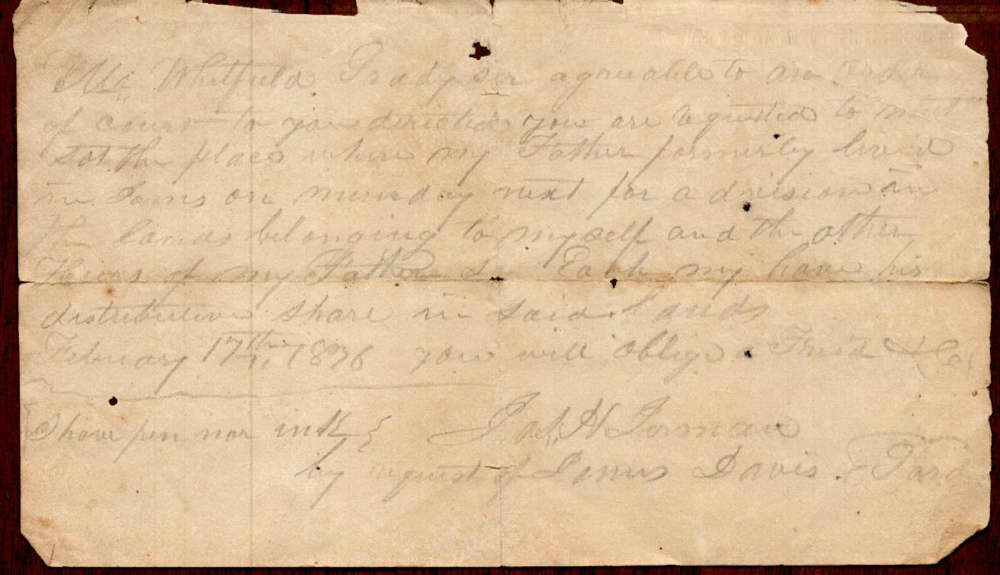 Mr. Whitfield Grady sir agreeable to an order
of court to you directed you are requested to meet
at the place where my Father formerly lived
on munday next for a division in
the lands belonging to myself and the other
Heirs of my Father Each my have his
distributive share in said Lands
February 17th 1876 you will oblige a Frind &C
I have pen nor ink
by request of Davis.